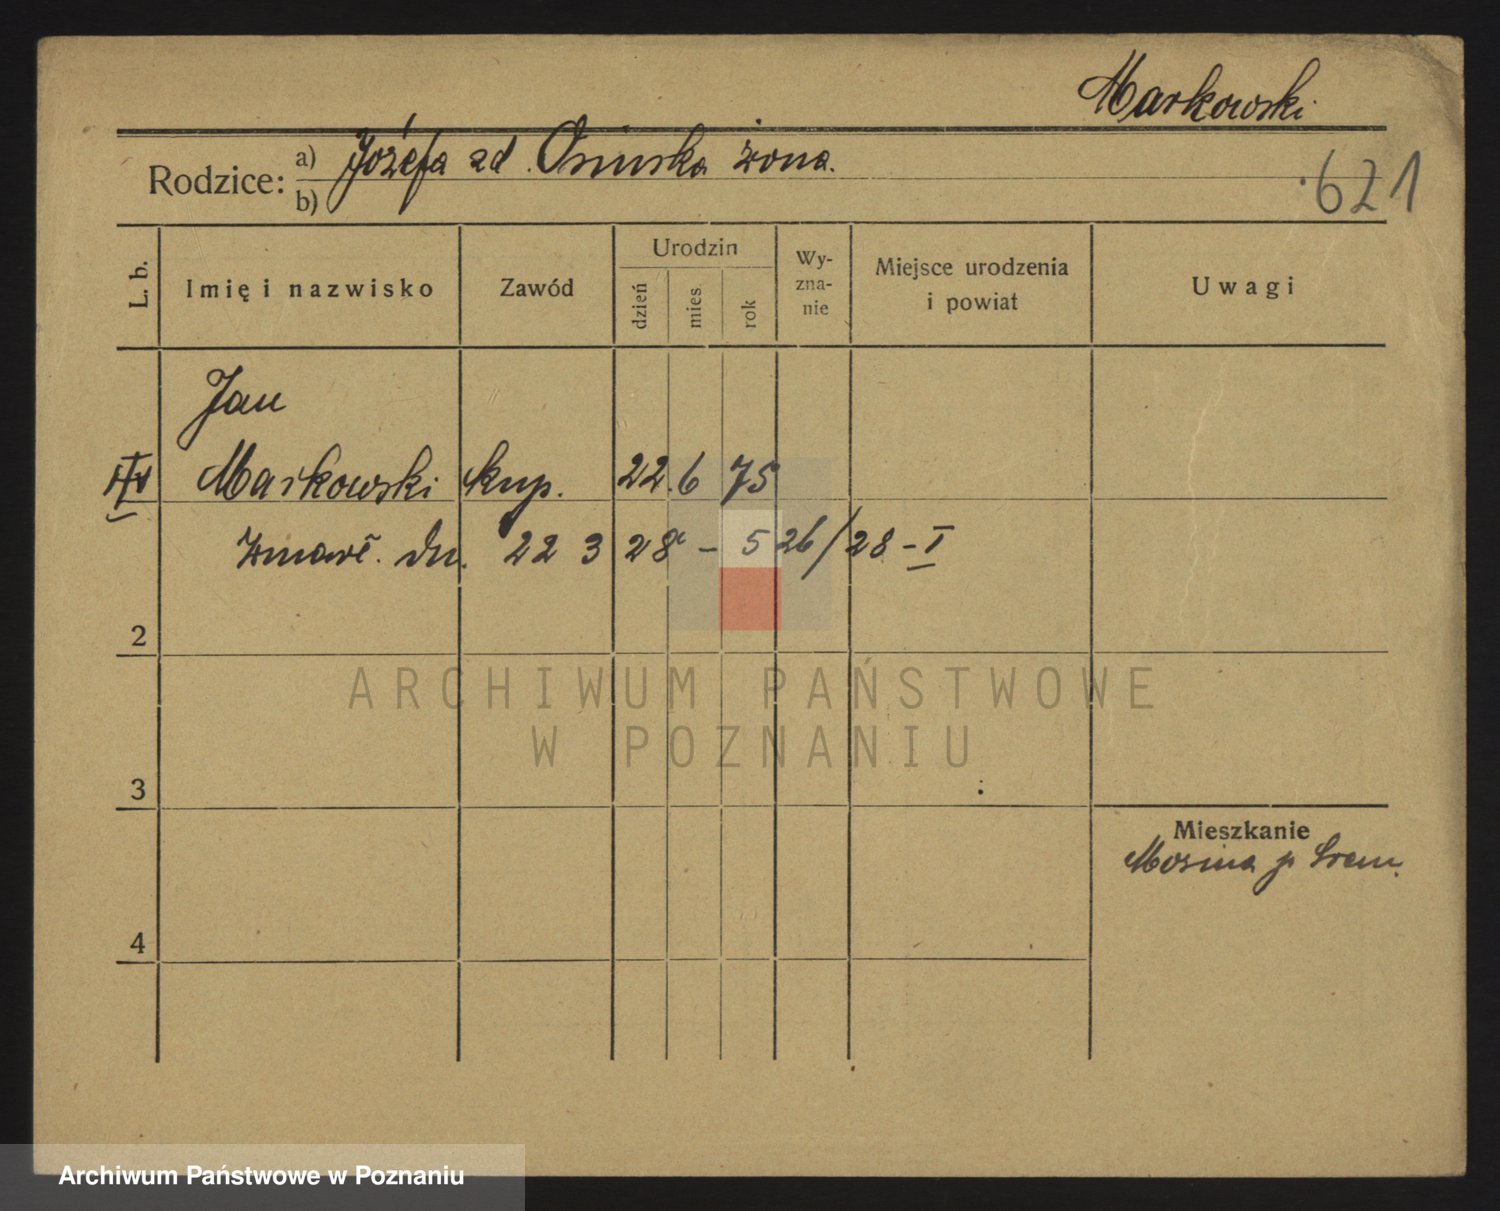 Markowski
Rodzice: a) Józefa zd. Osińska żona.
b)
621
L. b. Imię i nazwisko Zawód Urodzin dzień mies. rok Wy-zna-nie Miejsce urodzenia i powiat Uwagi
Jan
Markowski kup. 22. 6 75
zmarł. dn. 22 3 28 - 526/28 - I
2
ARCHIWUM PAŃSTWOWE
W POZNANIU
3
Mieszkanie
Mosina p Śrem.
4
Archiwum Państwowe w Poznaniu